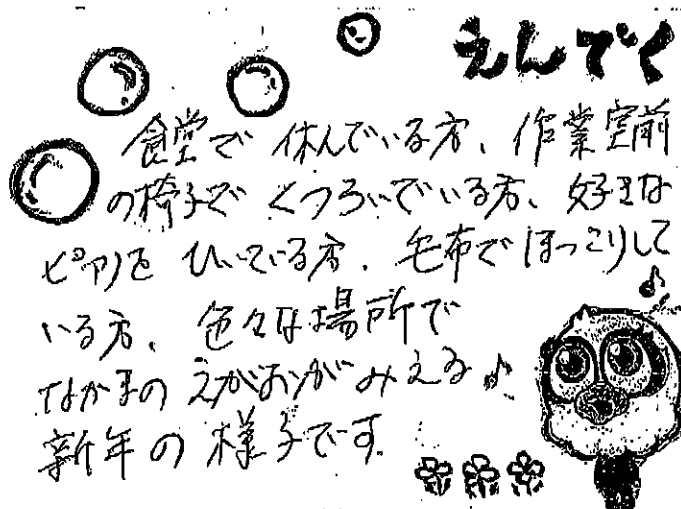 えんでく
食堂で休んでいる方、作業室前
の椅子でくつろいでいる方、好きな
ピアノをひいている方、毛布でほっこりして
いる方、色々な場所で
なかまのえがおがみえる♪
新年の様子です。